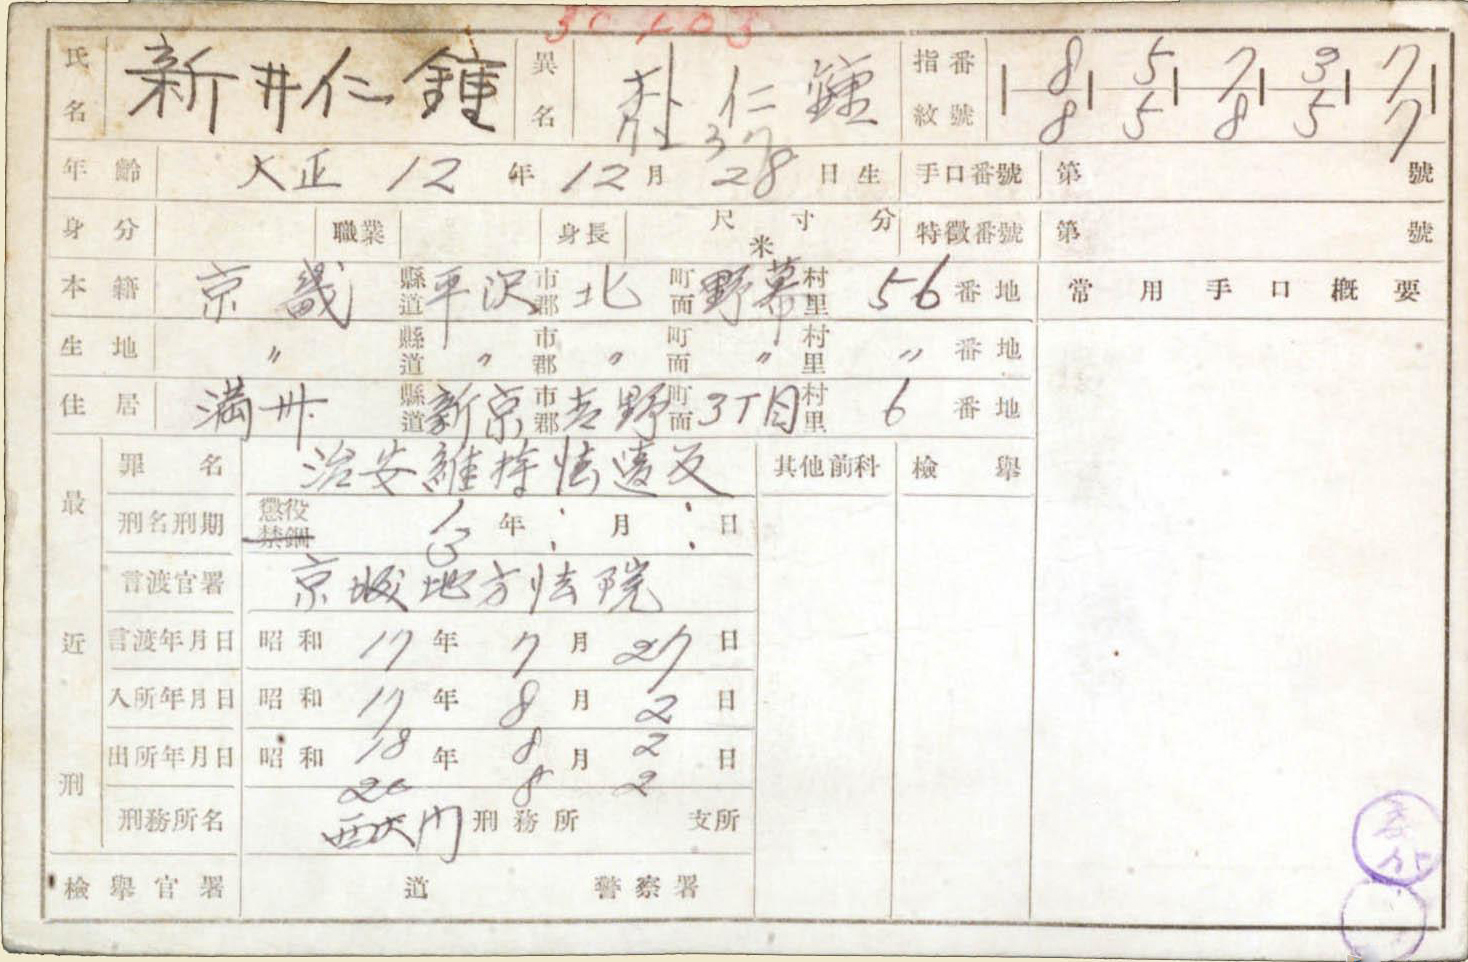 氏名 新井仁鍾 異名 朴仁鍾 指紋番號 8 5 7 3 7
8 5 8 5 7
年齡 大正 12 年 12 月 28 日生 手口番號 第 號
身分 職業 身長 尺 寸 分 米 特徵番號 第 號
本籍 京畿 縣道 平沢 市郡 北 町面 野幕 村里 56 番地 常用手口概要
生地 〃 縣道 〃 市郡 〃 町面 〃 村里 〃 番地
住居 満州 縣道 新京 市郡 吉野 町面 3丁目 村里 6 番地
最近刑
罪名 治安維持法違反 其他前科 檢擧
刑名刑期 懲役 禁錮 年 月 日
言渡官署 京城地方法院
言渡年月日 昭和 17 年 7 月 27 日
入所年月日 昭和 17 年 8 月 2 日
出所年月日 昭和 18 年 8 月 2 日
20 8 2
刑務所名 西大門 刑務所 支所
檢擧官署 道 警察署